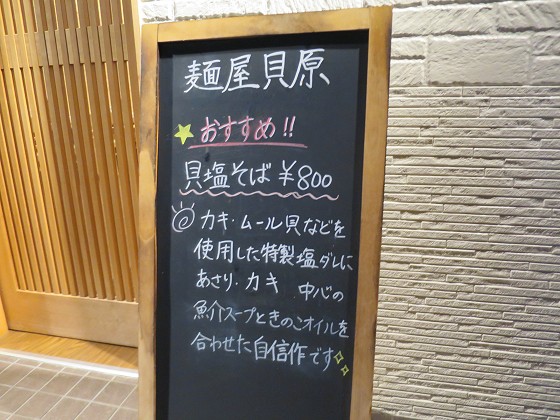 麺屋貝原
おすすめ!!
貝塩そば ¥800
カキ・ムール貝などを
使用した特製塩ダレに
あさり・カキ 中心の
魚介スープときのこオイルを
合わせた自信作です